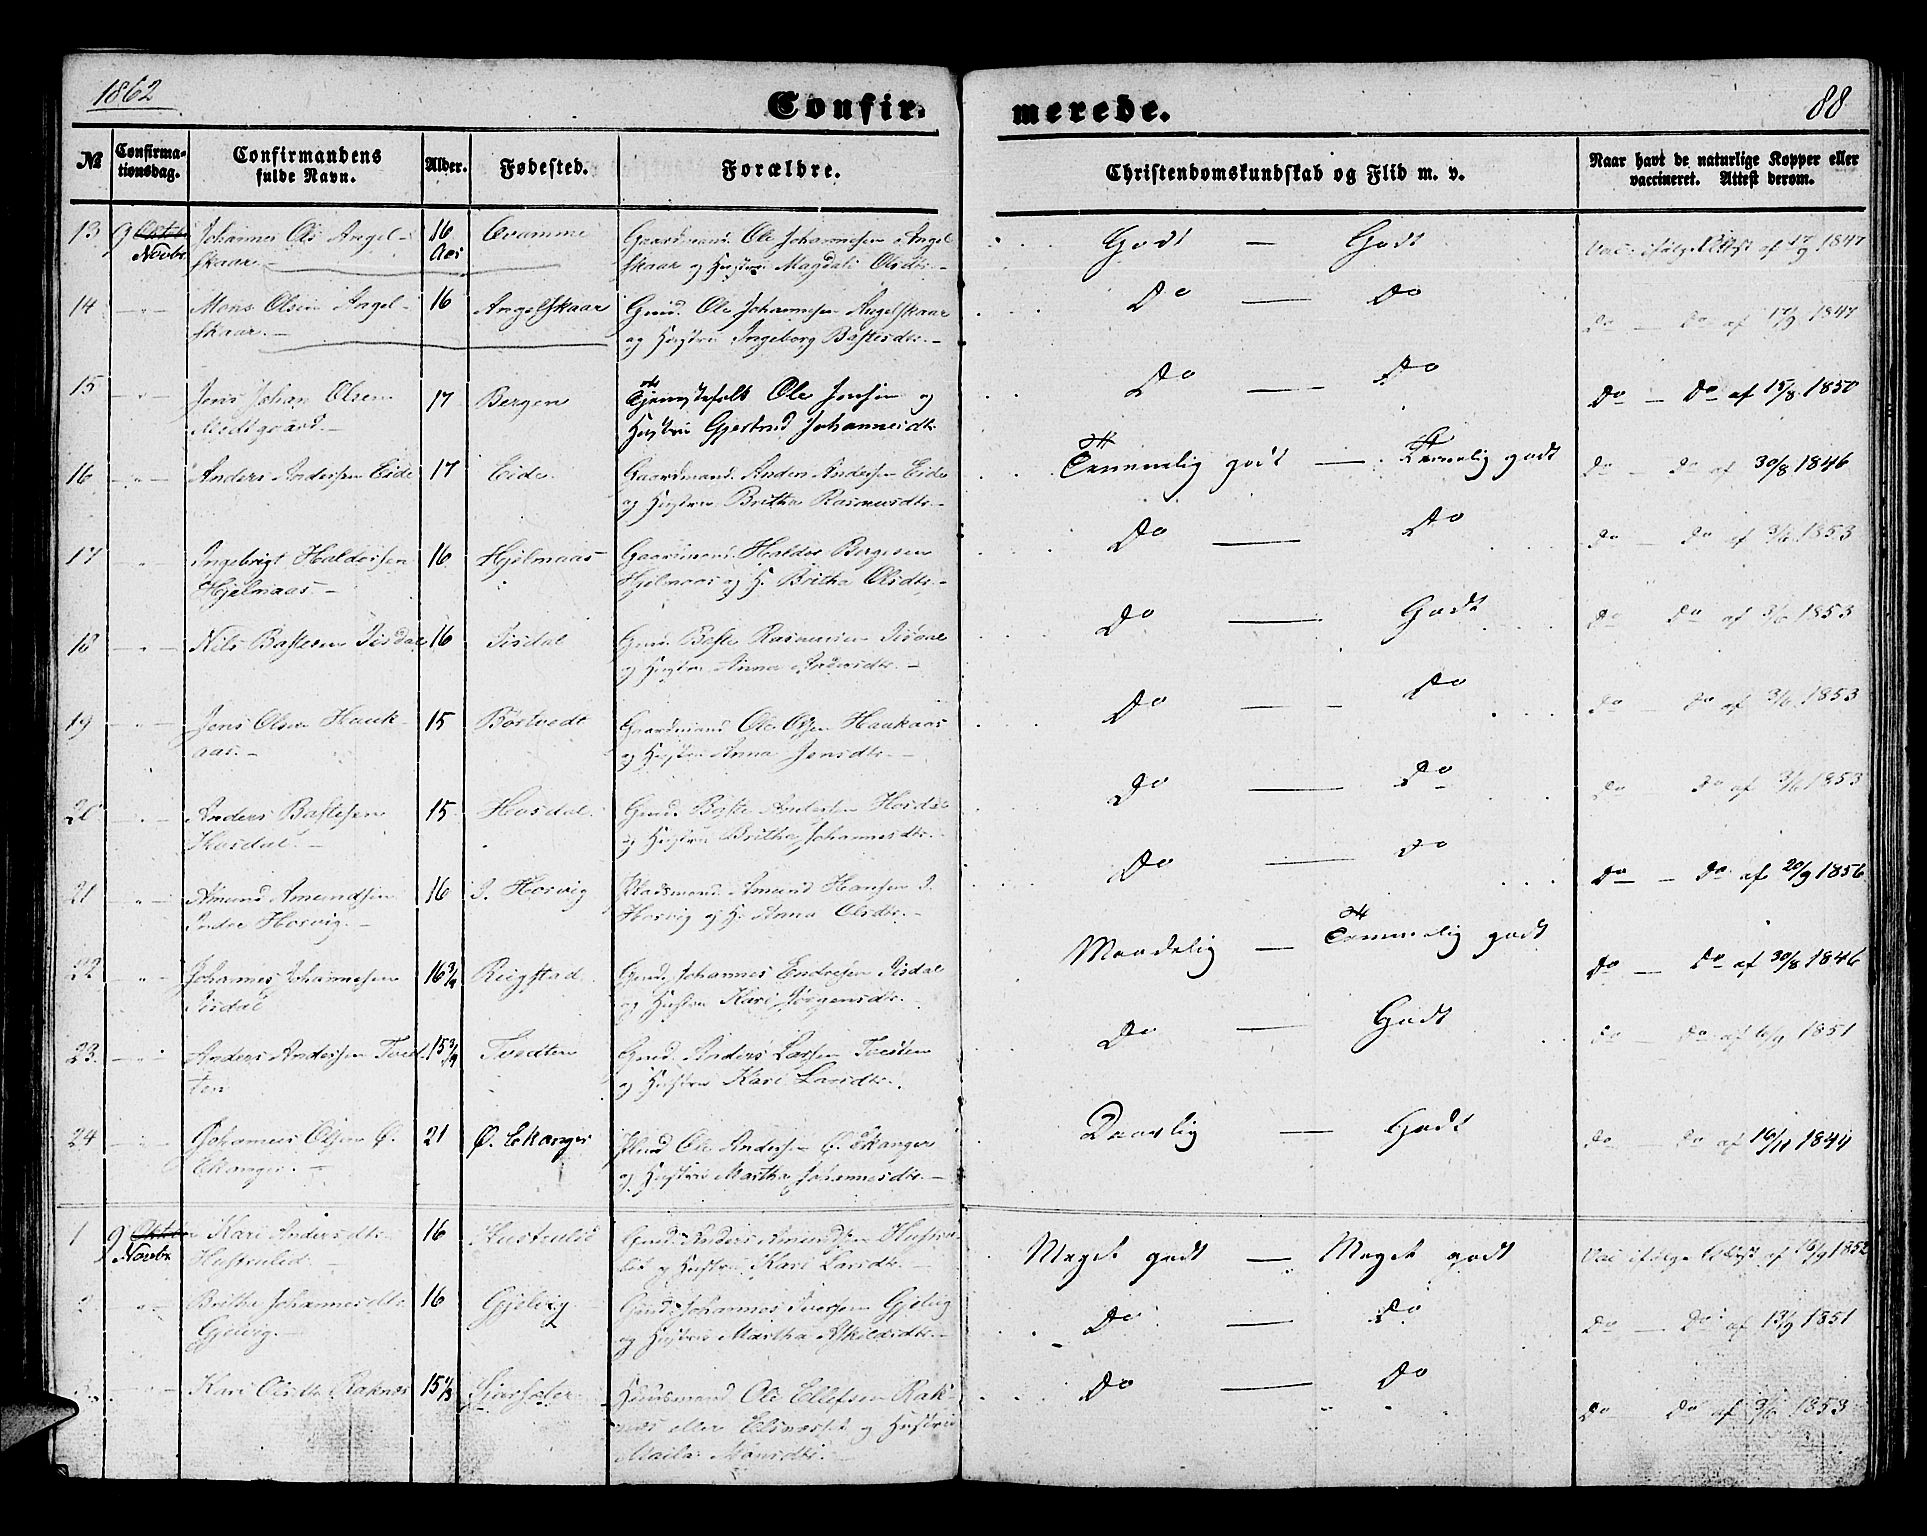 1862
Confir-
merede.
88
No
Confirma-
tionsdag.
Confirmandens
fulde Navn.
Alder.
Fødested.
Forældre.
Christendomskundskab og Flid m. v.
Naar havt de naturlige Kopper eller
vaccineret. Attest derom.
13 9 Octbr Johannes Ols Angel- 16 Qvamme Gaardmand Ole Johannesen Angel Godt — Godt Vac. ifølge Attest af 17/9 1847
Novbr skaar.— Aar skaar og Hustru Magdali Olsdtr.—
14 —"— Mons Olsen Angel- 16 Angelskaar Gmd. Ole Johannesen Angelskaar Do — Do Do — Do af 17/9 1847
skaar.— og Hustru Ingeborg Bastesdtr.—
15 —"— Jens Johan Olsen 17 Bergen Tjenestefolk Ole Jensen og Do — Do Do — Do af 15/8 1850
Midtgaard.— Hustru Gjertrud Johannesdtr.
16 —"— Anders Andersen Eide 17 Eide. Gaardmand Anders Andersen Eide Temmelig godt — Temmelig godt Do — Do af 30/8 1846
og Hustru Britha Rasmusdtr.—
17 " Ingebrigt Haldorsen 16 Hjelmaas Gaardmand Haldor Bergesen Do — Do Do — Do af 3/6 1853
Hjelmaas.— Hjelmaas og H. Britha Olsdtr.—
18 —"— Nils Bastesen Isdal 16 Isdal Gmd. Baste Rasmussen Isdal Do — Godt Do Do af 3/6 1853
og Hustru Anna Andersdtr.—
19 —"— Jens Olsen Hauk- 15 Børtvedt Gaardmand Ole Olsen Haukaas Do — Do Do — Do af 3/6 1853
aas.— og Hustru Anna Jensdtr.—
20 —"— Anders Bastesen 15 Hosdal. Gmd. Baste Andersen Hosdal Do — Do Do — Do af 3/6 1853
Hosdal.— og Hustru Britha Johannesdtr.—
21 "— Amund Amundsen 16 I. Horvig Pladsmand Amund Hansen I. Do — Do Do — Do af 20/9 1856
Indre Horvig.— Horvig og H. Anna Olsdtr.—
22 "— Johannes Johannesen 16 3/4 Reigstad. Gmd. Johannes Endresen Isdal Maadelig — Temmelig godt Do — Do af 30/8 1846
Isdal og Hustru Kari Jørgensdtr.
23. —"— Anders Andersen Tved- 15 3/4 Tvedten Gmd. Anders Larsen Tvedten Do — Godt Do Do af 6/9 1851
ten og Hustru Kari Larsdtr.
24 —"— Johannes Olsen Ø. 21 Ø. Ekanger Hmd Ole Andersen Ø. Ekanger Daarlig — Godt Do — Do af 16/11 1844
Ekanger.— og Hustru Martha Johannesdtr.—
1 9 Octbr Kari Andersdtr. 16 Hustrulid Gmd. Anders Amundsen Hustru- Meget godt — Meget godt Vac ifølge Attest af 16/9 1852
Novbr Hustrulid.— lid og Hustru Kari Larsdtr.—
2 "— Britha Johannesdtr. 16 Gjelvig. Gmd. Johannes Iversen Gjelvig Do — Do Do — Do af 13/9 1851
Gjelvig.— og Hustru Martha Askildsdtr.—
3. —"— Kari Olsdtr Raknes 15 Huusmand Ole Ellefsen Rak- Do — Do Do Do af 3/6 1853
næs eller og Hustru
Monsdtr.—